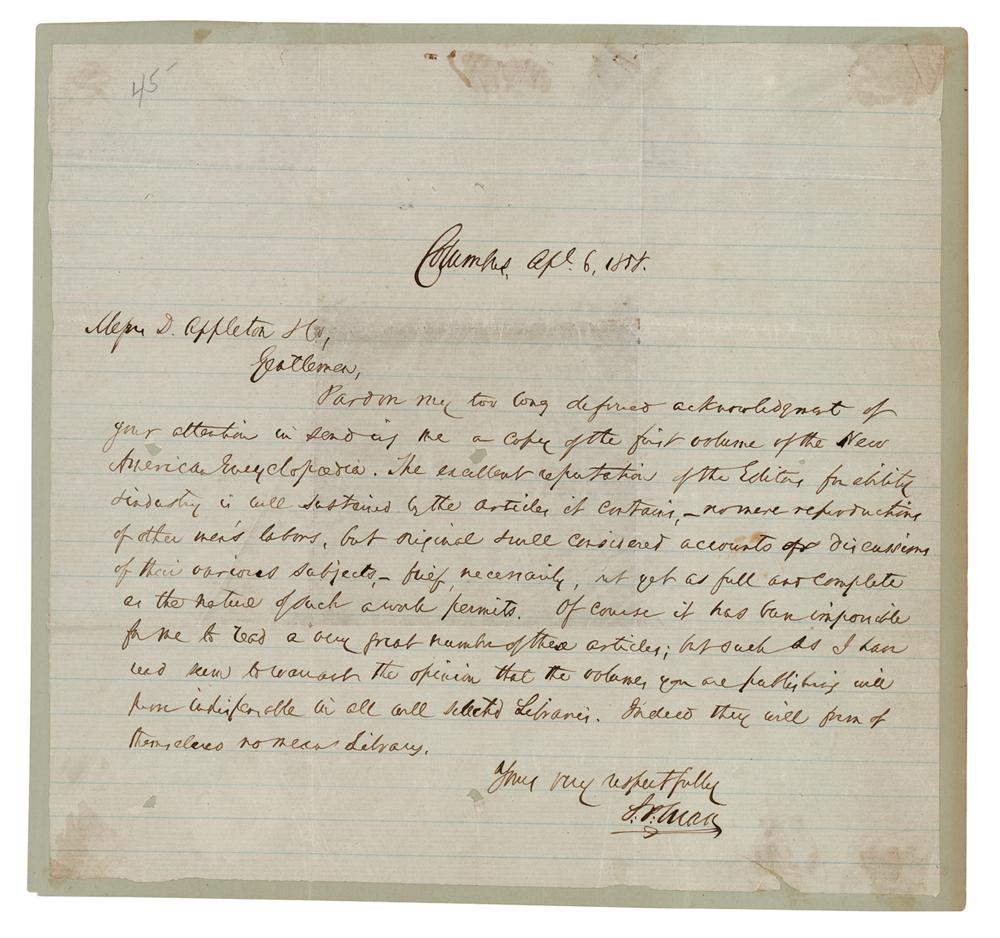 45
Columbus, Apl. 6, 1858.
Messrs D. Appleton & Co,
Gentlemen,
Pardon my too long deferred acknowledgment of
your attention in sending me a copy of the first volume of the New
American Encyclopædia. The excellent reputation of the Editors for ability
& industry is well sustained by the articles it contains, – no mere reproductions
of other men's labors, but original & well considered accounts or discussions
of their various subjects, – brief, necessarily, but yet as full and complete
as the nature of such a work permits. Of course it has been impossible
for me to read a very great number of these articles; but such as I have
read seem to warrant the opinion that the volumes you are publishing will
prove indispensable in all well selected Libraries. Indeed they will form of
themselves no mean Library.
Yours very respectfully
S. P. Chase